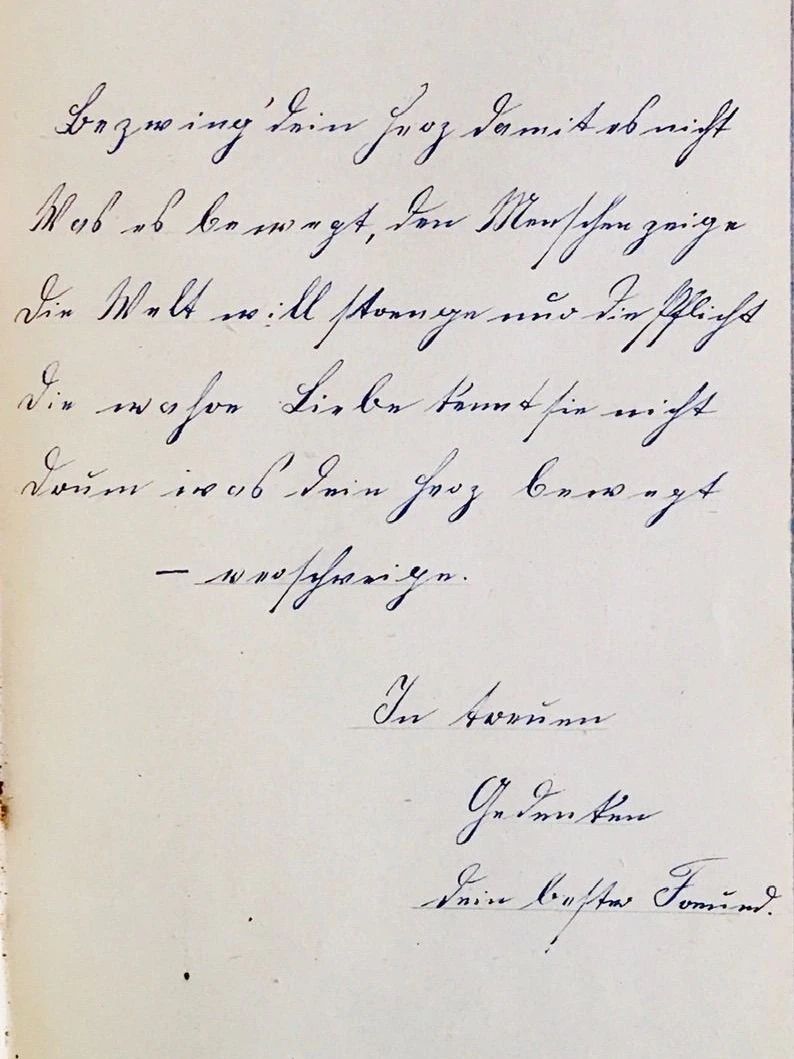 Bezwing' dein Herz damit es nicht
Was es bewegt, den Menschen zeige
Die Welt will strenge nur die Pflicht
Die wahre Liebe kennt sie nicht
Drum was dein Herz bewegt
– verschweige.
In treuen
Gedenken
dein bester Freund.